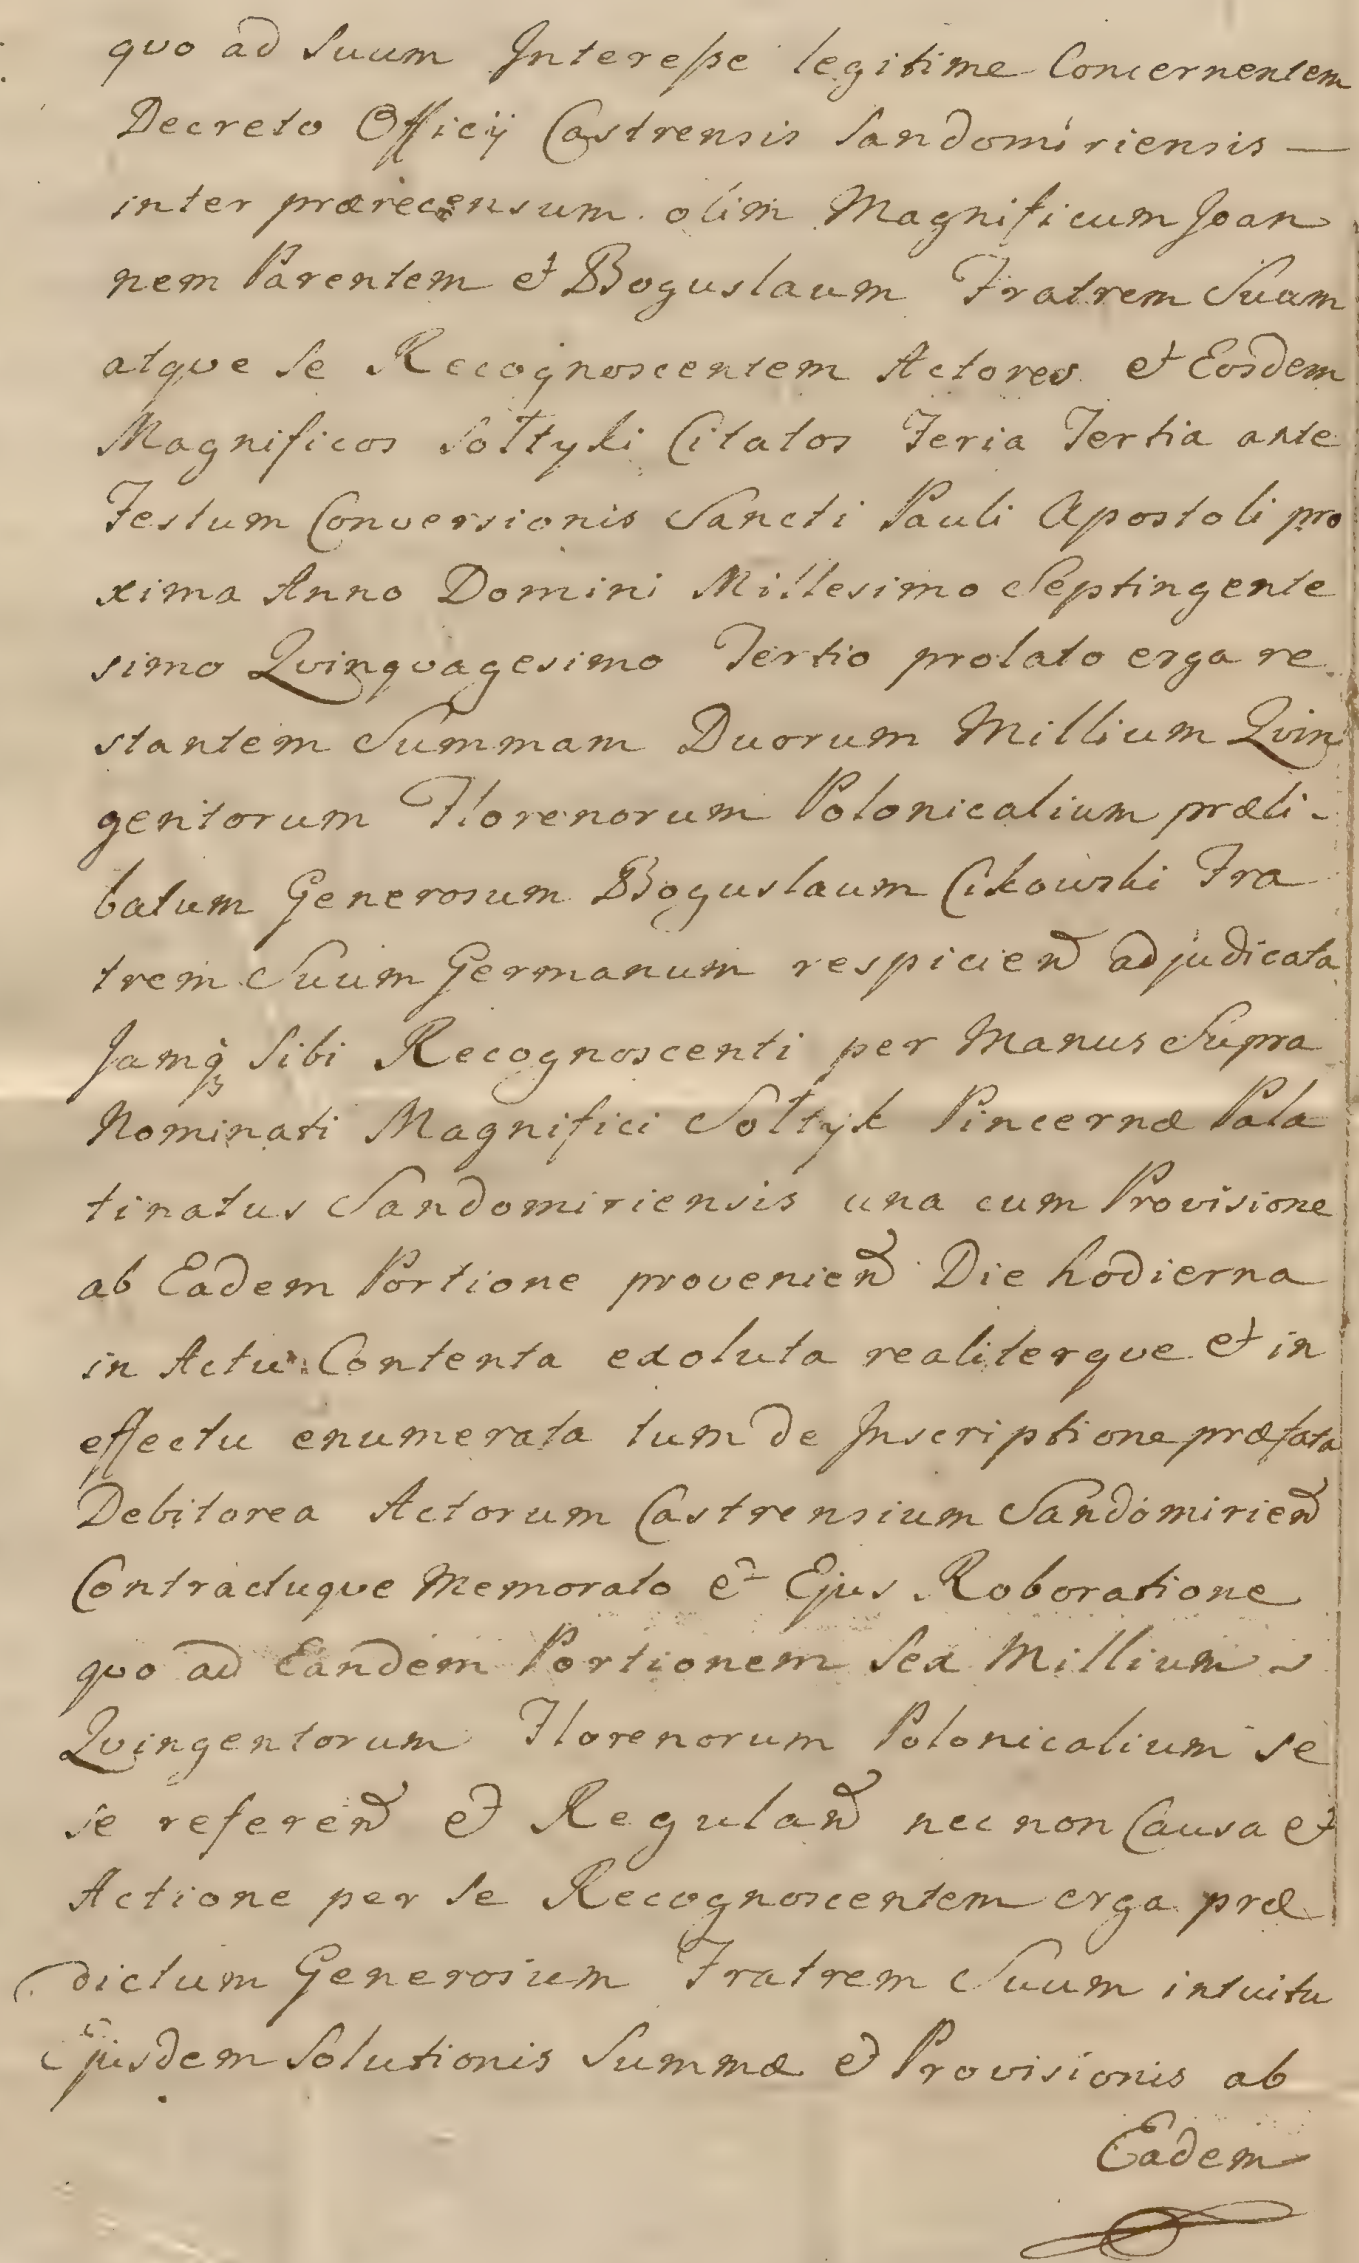 quo ad Suum Interesse legitime Concernentem
Decreto Officij Castrensis Sandomiriensis —
inter prærecensum olim Magnificum Joan
nem Parentem et Boguslaum Fratrem Suam
atque se Recognoscentem Actores et Eosdem
Magnificos Sołtyki Citatos Feria Tertia ante
Festum Conversionis Sancti Pauli Apostoli pro
xima Anno Domini Millesimo Septingente
simo Quinquagesimo Tertio prolato erga re
stantem Summam Duorum Millium Quin
gentorum Florenorum Polonicalium præli-
batum Generosum Boguslaum Cikowski Fra
trem Suum Germanum respicien̄ adjudicata
Jamq̓ Sibi Recognoscenti per Manus Supra
Nominati Magnifici Sołtyk Pincernæ Pala
tinatus Sandomiriensis una cum Provisione
ab Eadem Portione provenien̄ Die hodierna
in Actu Contenta exoluta realiterque et in
effectu enumerata tum de Inscriptione præfata
Debitorea Actorum Castrensium Sandomirien̄
Contractuque Memorato et Ejus Roboratione
quo ad Eandem Portionem Sex Millium ~
Quingentorum Florenorum Polonicalium se
se referen̄ et Regulan̄ nec non Causa et
Actione per se Recognoscentem erga præ
dictum Generosum Fratrem Suum intuitu
Ejusdem Solutionis Summæ et Provisionis ab
Eadem